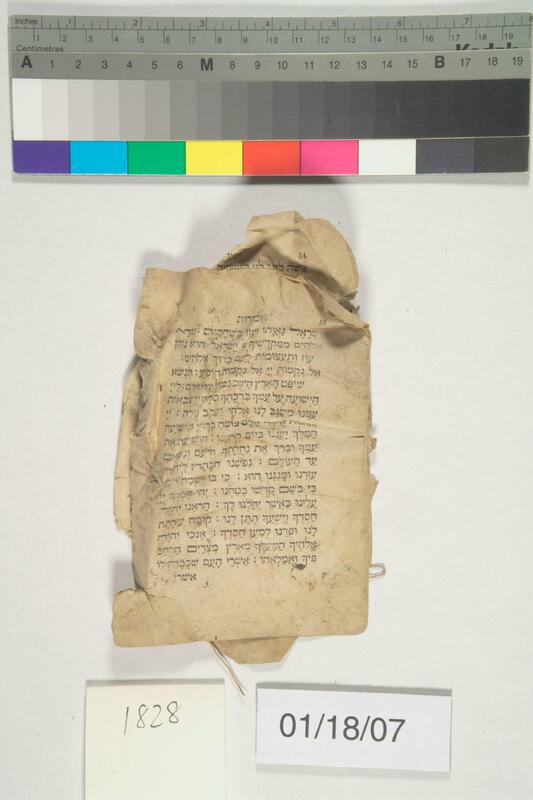 Inches 1 2 3 4 5 6 7 8
Centimetres 1 2 3 4 5 6 7 8 9 10 11 12 13 14 15 16 17 18 19
Kodak
A 1 2 3 4 5 6 M 8 9 10 11 12 13 14 15 B 17 18 19
34
זמרות
ישראל גַּאֲוָתוֹ
אלהים ממקדשיך ישראל הוא נותן
עוז ותעצומות לעם ברוך אלהים:
אל נקמות יי אל נקמות הופיע: הנשא
שופט הארץ השב גמול ליי
הישועה על עמך ברכתך סלה יי צבאות
עמנו משגב לנו אלהי יעקב סלה: יי
צבאות אשרי אדם בוטח בך: יי הושיעה
המלך יעננו ביום קראנו: הושיעה את
עמך וברך את נחלתך ורעם ונשאם
עד העולם: נפשנו חכתה ליי
עזרנו ומגננו הוא: כי בו ישמח
כי בשם קדשו בטחנו: יהי חסדך יי
עלינו כאשר יחלנו לך: הראנו יהוה
חסדך וישעך תתן לנו: קומה עזרתה
לנו ופדנו למען חסדך: אנכי יהוה
אלהיך המעלך מארץ מצרים הרחב
פיך ואמלאהו: אשרי העם שככה לו
אשרי
1828
01/18/07